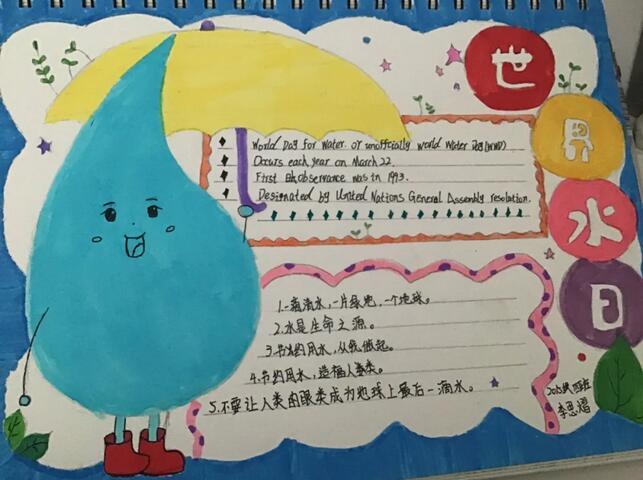 世界水日
World Day for Water. or unofficially world Water Day(WWD)
Occurs each year on March 22.
First observance was in 1993.
Designated by United Nations General Assembly resolution.
1.一滴清水，一片绿地，一个地球。
2.水是生命之源。
3.节约用水，从我做起。
4.节约用水，造福人类。
5.不要让人类的眼泪成为地球上最后一滴水。
李思熠